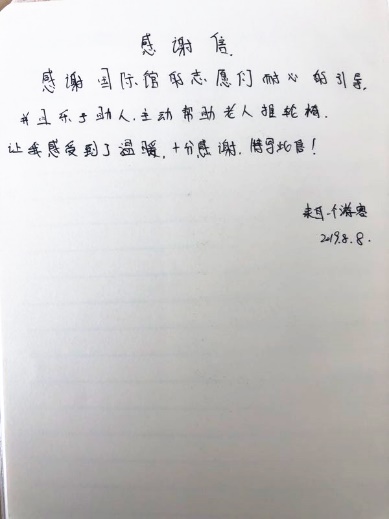 感谢信
感谢国际馆的志愿们耐心的引导,
并且乐于助人.主动帮助老人推轮椅.
让我感受到了温暖,十分感谢.特写此信!
来自一个游客
2019.8.8.